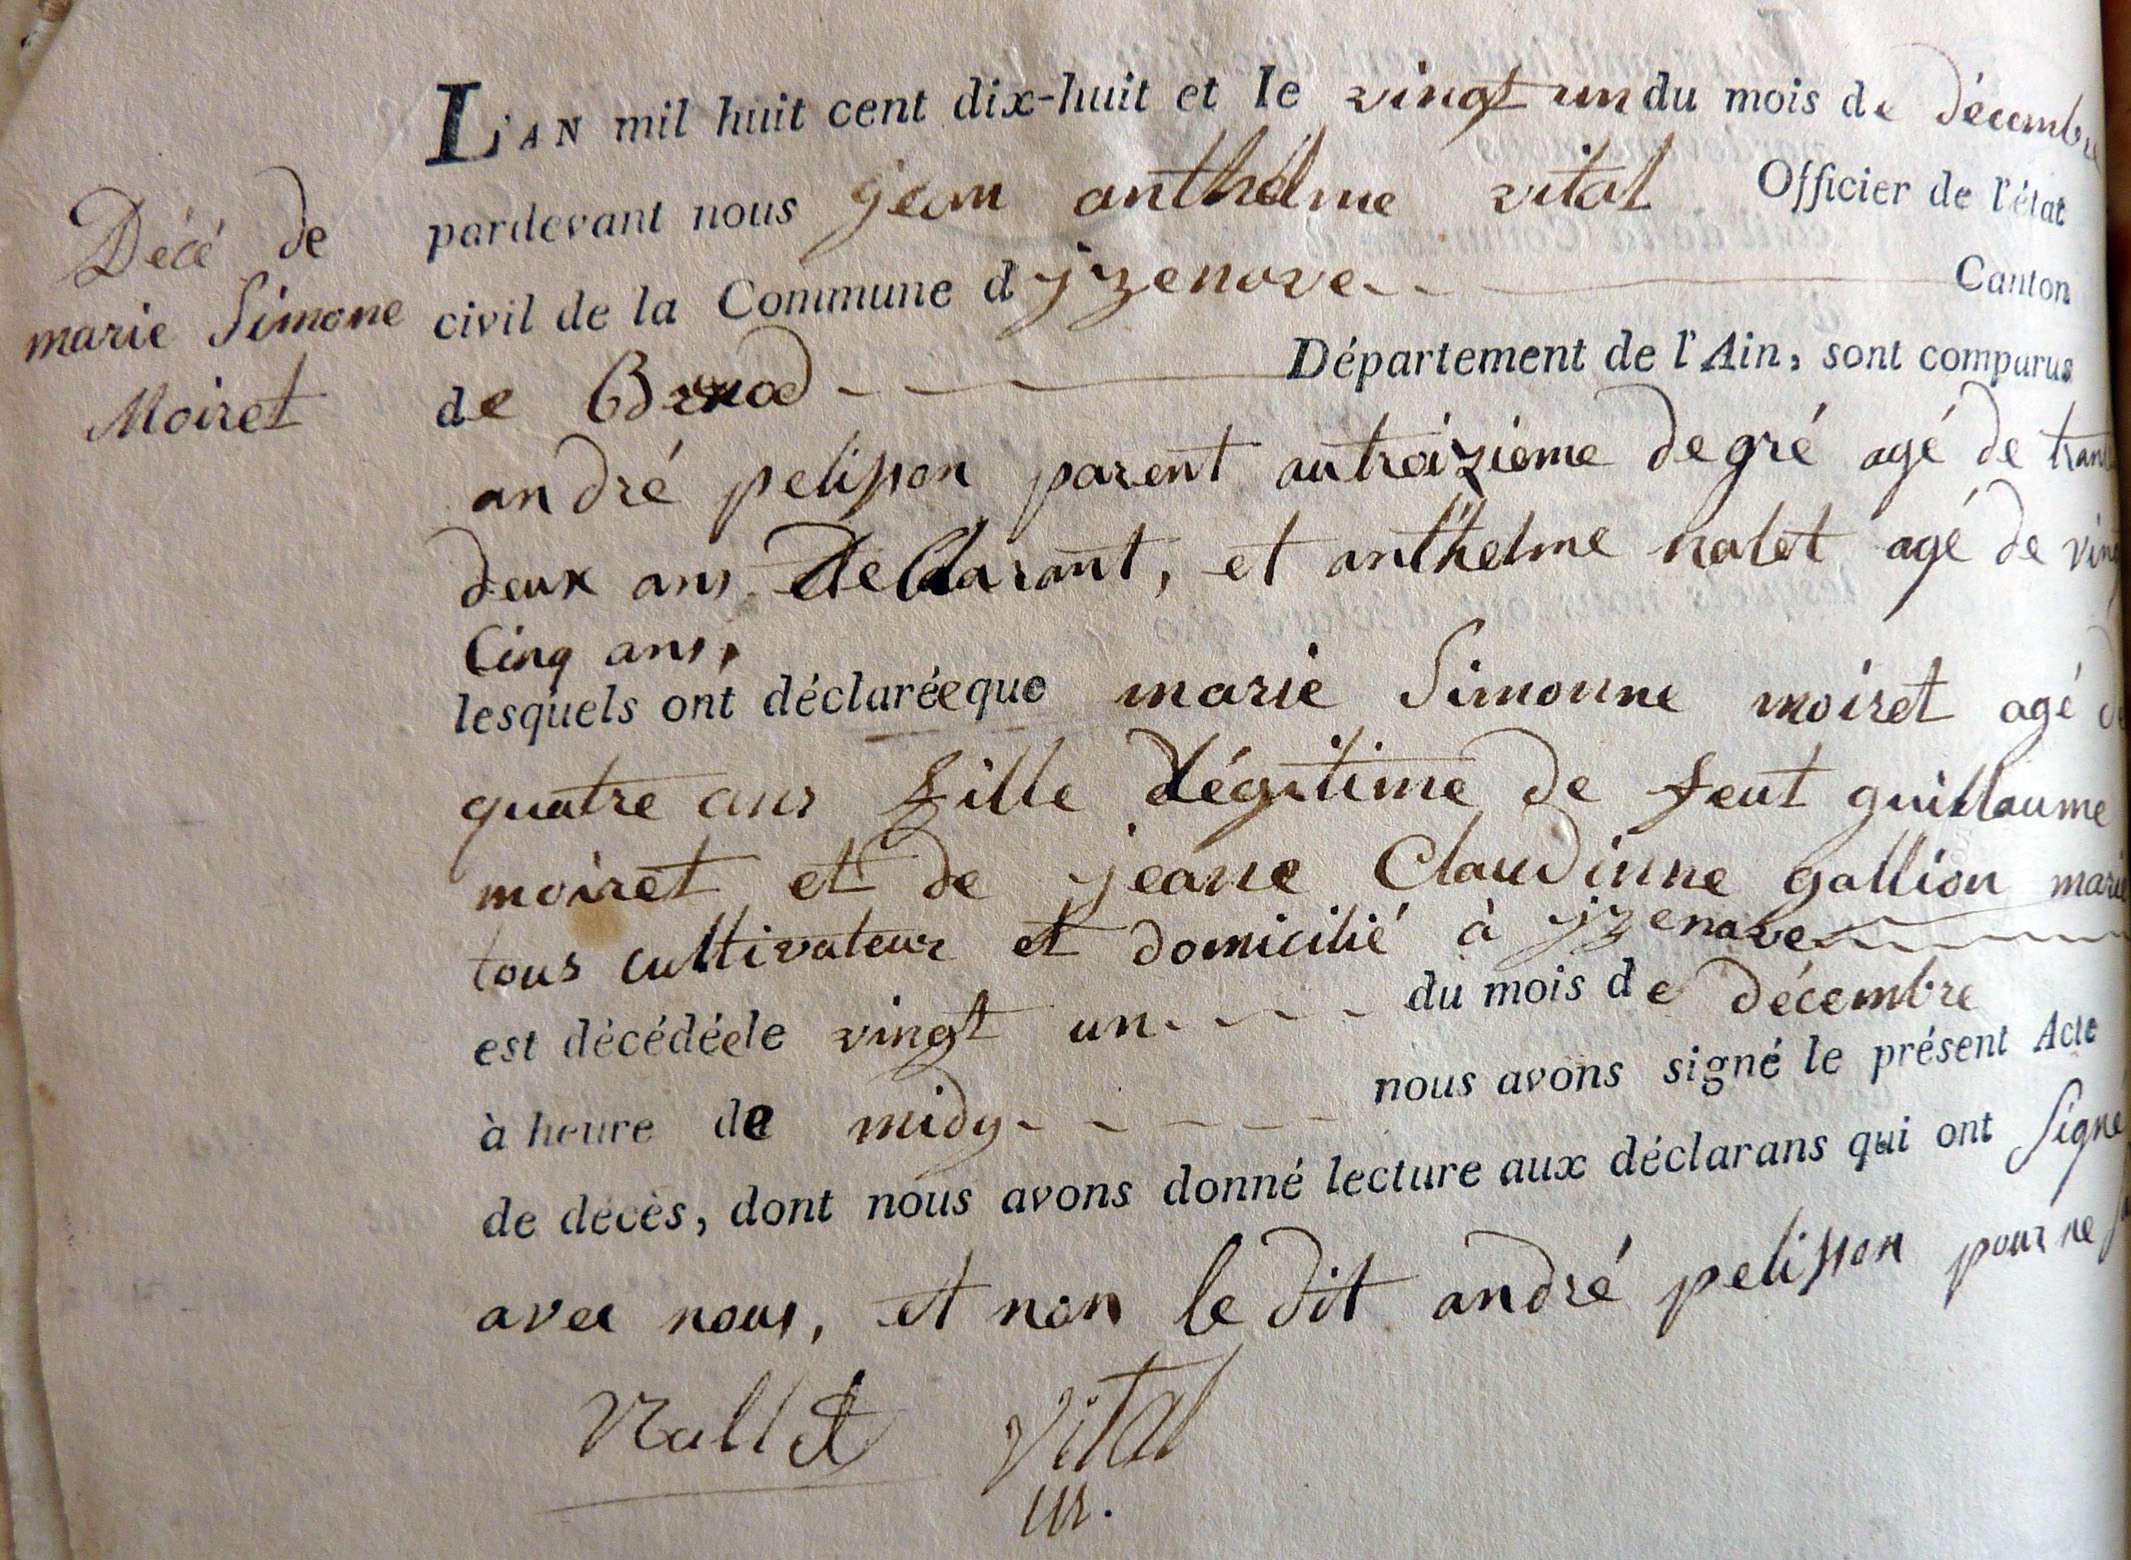 Décé de
marie Simone
Moiret
L'AN mil huit cent dix-huit et le vingt un du mois de décembre
pardevant nous jean anthelme vital Officier de l'état
civil de la Commune d yzenave Canton
de Brenod Département de l'Ain, sont comparus
andré pelisson parent autroizieme degré agé de
deux ans Declarant, et anthelme nalet agé de
Cinq ans,
lesquels ont déclarée que marie Simonne moiret agé de
quatre ans fille légitime de feut guillaume
moiret et de jeane Claudinne gallion
tous cultivateur et domicilié à yzenave
est décédée le vingt un du mois de décembre
à heure de midy nous avons signé le présent Acte
de décès, dont nous avons donné lecture aux déclarans qui ont signé
avec nous, et non le dit andré pelisson pour ne
Nallet Vital